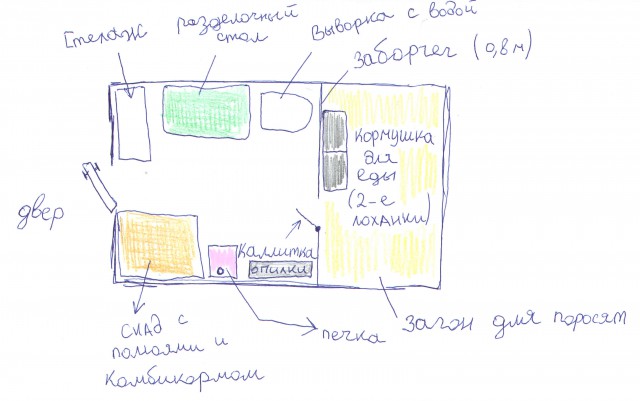 Стелаж
разделочный
стол
Выворка с водой
Заборчег (0,8м)
Кормушка
для
еды
(2-е
лоханки)
двер
Каллитка
опилки
Скад с
помоями и
Комбикормом
печка
Загон для поросят